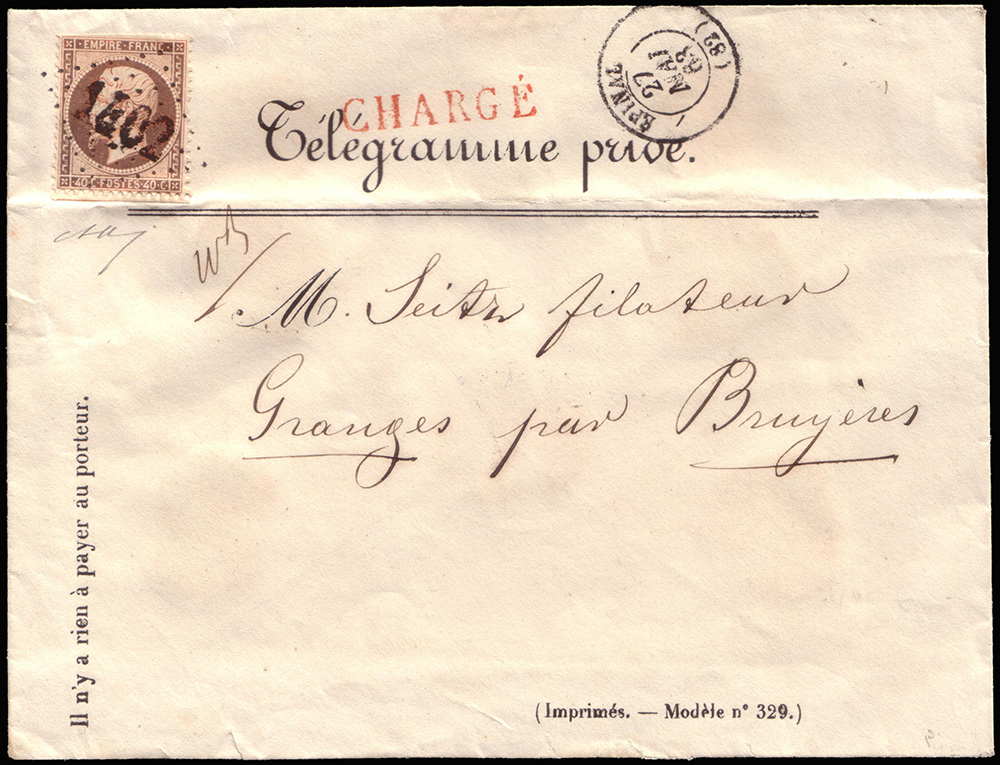 EMPIRE FRANC
1402
40 C POSTES 40 C
CHARGÉ
EPINAL
27
MAI
63
(82)
Télégramme privé.
M. Seitz filateur
Granges par Bruyères
Il n'y a rien à payer au porteur.
(Imprimés. — Modèle n° 329.)